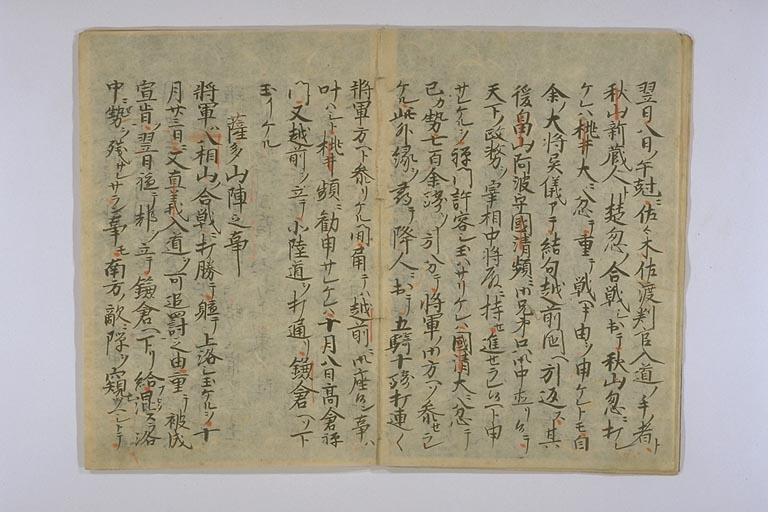 翌日八日ノ午刻ニ佐々木佐渡判官入道ノ手ノ者ト
秋山新蔵人ト楚忽ノ合戦シ出テ秋山忽ニ打レ
ケレハ桃井大ニ忿テ重テ戦ン由ヲ申ケレトモ自
余ノ大将異儀アテ結句越前囯ヘ引返ス其
後畠山阿波守國清頻ニ御兄弟只御中直リ候テ
天下ノ政務ヲ宰相中将殿ニ持セ進セラレ候ヘト申
サレケルヲ禅門許容シ玉ハサリケレハ國清大ニ忿テ
己カ勢七百余騎ヲ引分テ将軍ノ御方ヘソ参セラレ
ケル此外縁ヲ尋テ降人ニ出テ五騎十騎打連々
將軍方ヘト参リケル間角テハ越前ニ御座候ン事ハ
叶ハシト桃井頻ニ勧申サレケレハ十月八日高倉禅
門又越前ヲ立テ小陸道ヲ打通リ鎌倉ヘソ下
玉ヒケル
薩多山陣之事
将軍ハ八相山ノ合戦ニ打勝テ軈テ上洛シ玉ケルヲ十
月廿三日ニ又直義入道ヲ可追罸之由重テ被成
宣旨ヲ翌日軈テ都ヲ立テ鎌倉ヘ下リ給混ラ洛
中ニ勢ヲ残サレサラン事モ南方ノ敵ニ隙ヲ窺ツヘシトテ